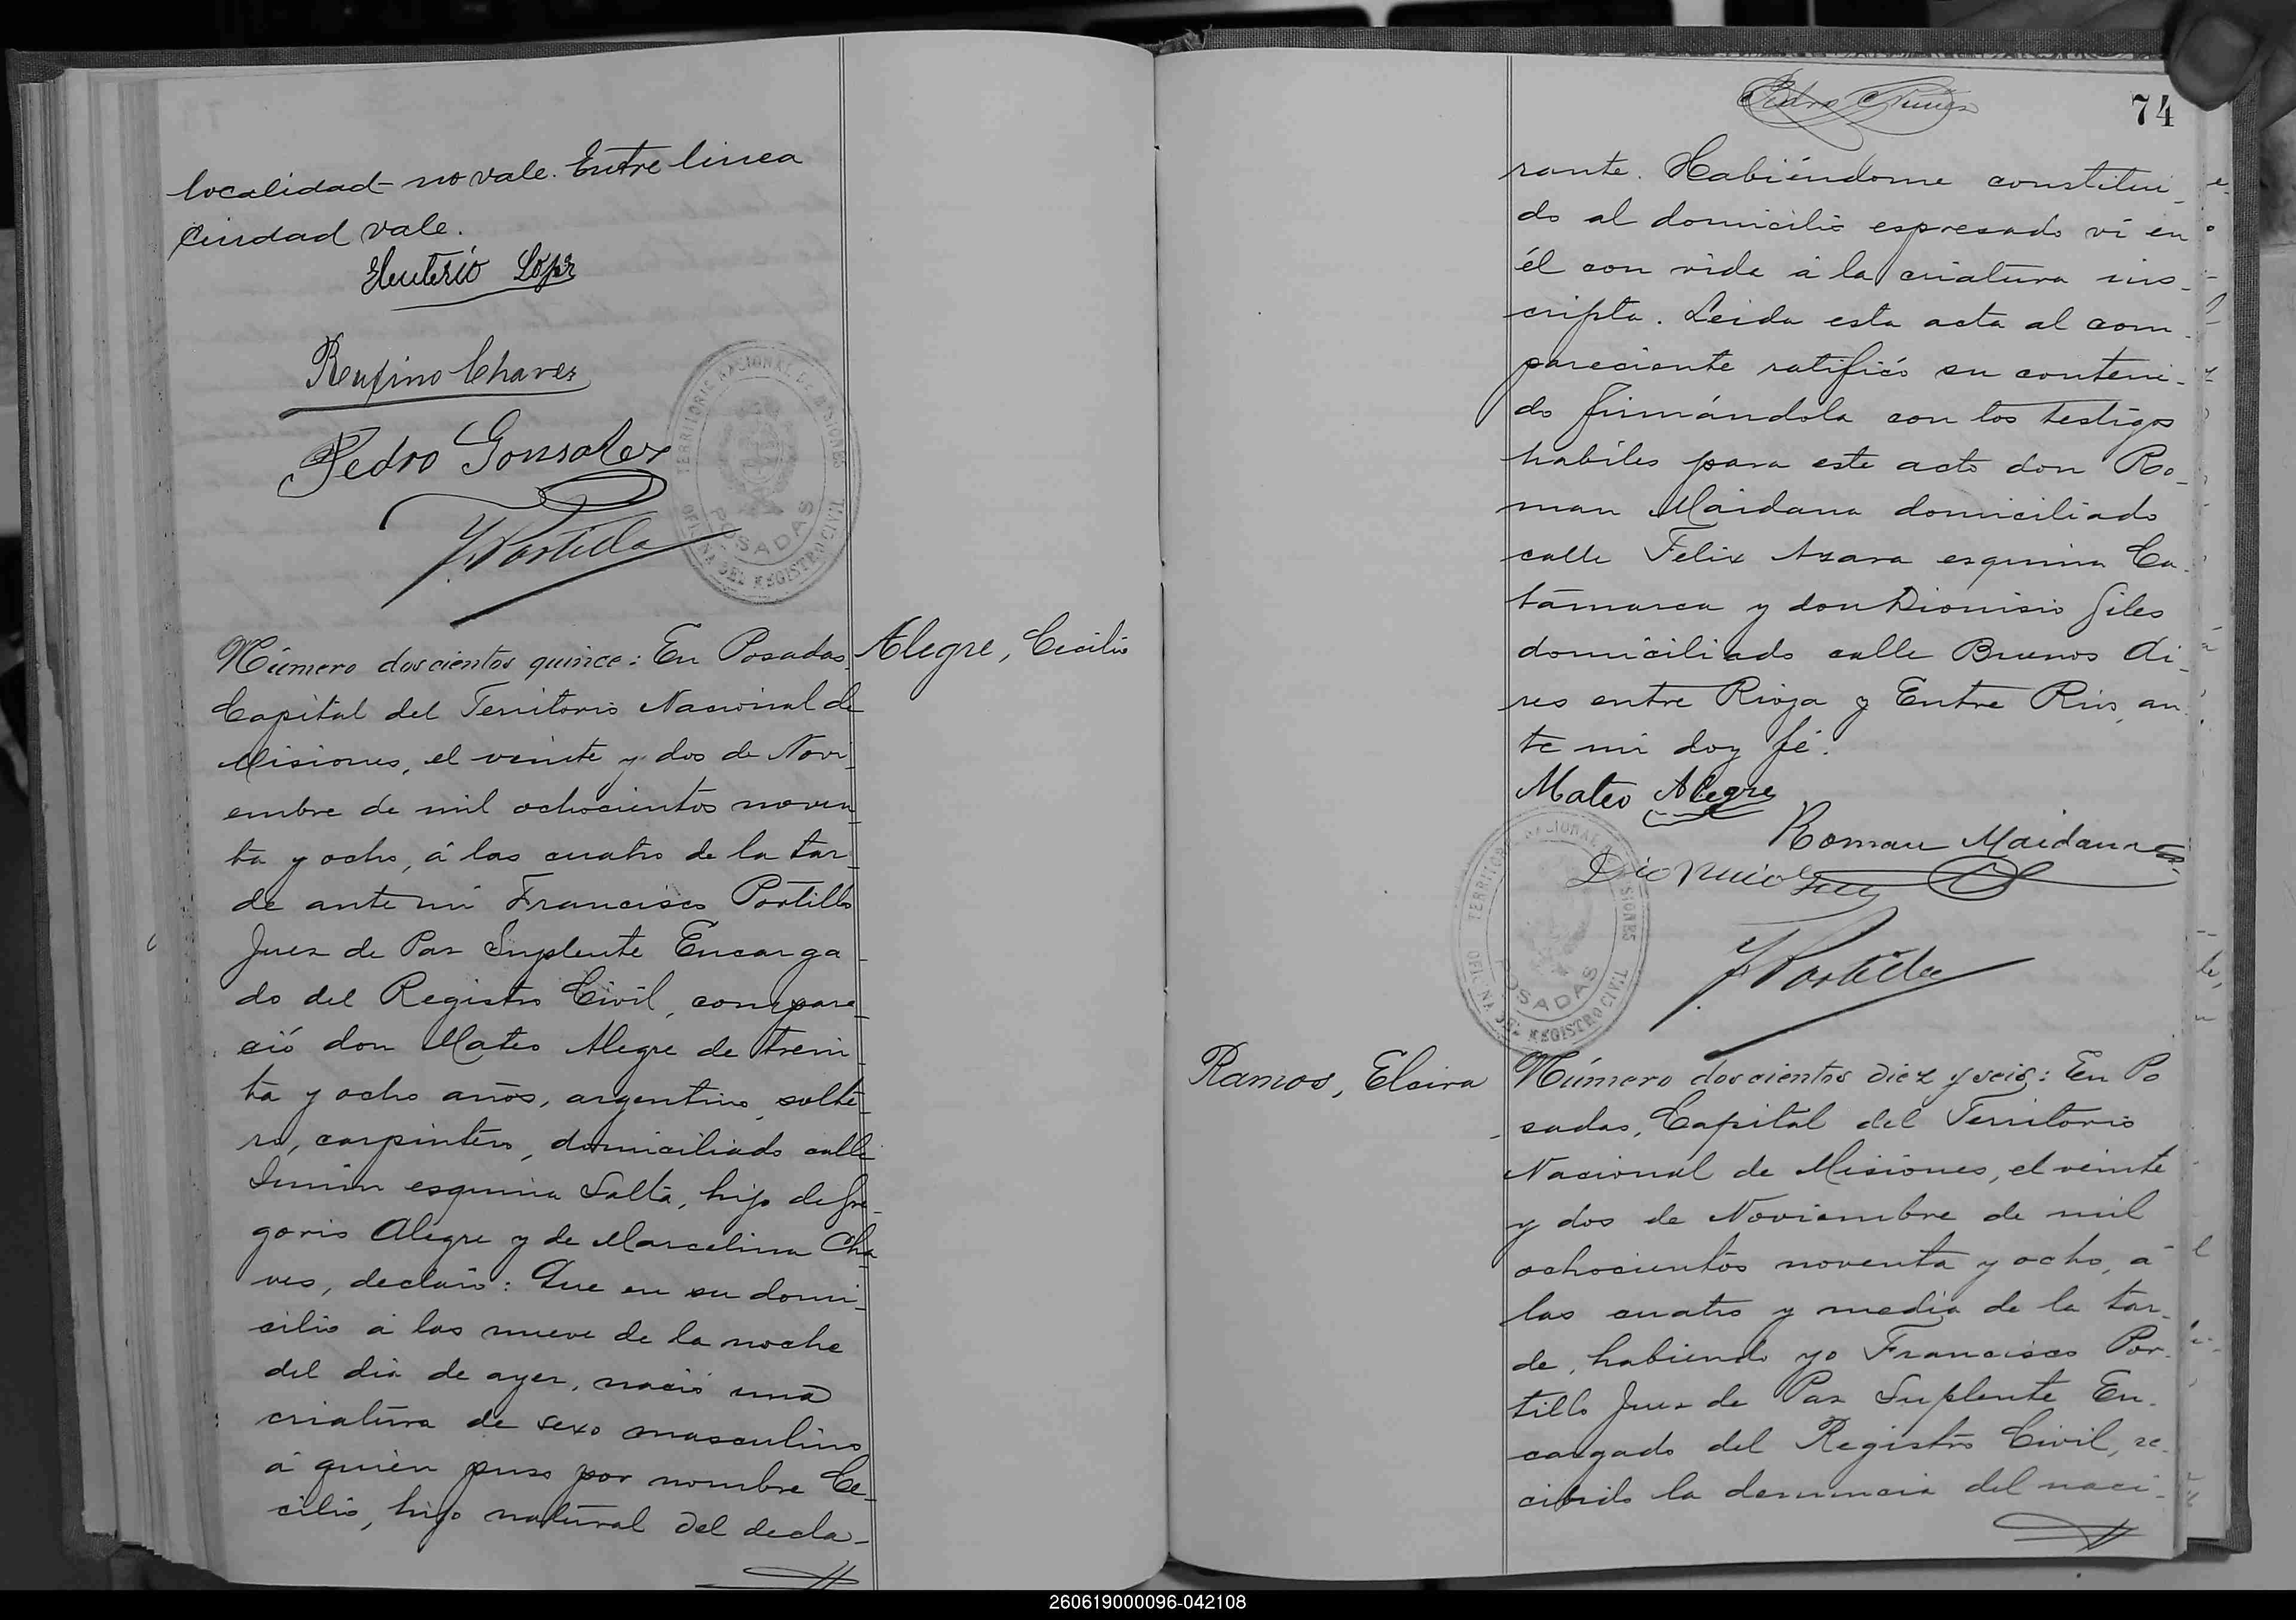 localidad no vale. Entre linea
ciudad vale.
Eleuterio Lopez
Rufino Chavez
Pedro Gonsalez
F. Portillo
TERRITORIO NACIONAL DE MISIONES
POSADAS
OFICINA DEL REGISTRO CIVIL
Alegre, Cecilio
Número doscientos quince: En Posadas,
Capital del Territorio Nacional de
Misiones, el veinte y dos de Novi-
embre de mil ochocientos noven-
ta y ocho, á las cuatro de la tar-
de ante mi Francisco Portillo
Juez de Paz Suplente Encarga-
do del Registro Civil, compare-
ció don Mateo Alegre de trein-
ta y ocho años, argentino, solte-
ro, carpintero, domiciliado calle
Junin esquina Salta, hijo de Gre-
gorio Alegre y de Marcelina Cha-
ves, declaró: Que en su domi-
cilio á las nueve de la noche
del dia de ayer, nació una
criatura de sexo masculino
á quien puso por nombre Ce-
cilio, hijo natural del decla-
74
rante. Habiéndome constitui-
do al domicilio espresado vi en
él con vida á la criatura ins-
cripta. Leida esta acta al com-
pareciente ratificó su conteni-
do firmándola con los testigos
habiles para este acto don Ro-
man Maidana domiciliado
calle Felix Azara esquina Ca-
tamarca y don Dionisio Giles
domiciliado calle Buenos Ai-
res entre Rioja y Entre Rios, an-
te mi doy fé.
Mateo Alegre
Roman Maidana
F. Portillo
TERRITORIO NACIONAL DE MISIONES
POSADAS
OFICINA DEL REGISTRO CIVIL
Ramos, Elcira
Número doscientos diez y seis: En Po
sadas, Capital del Territorio
Nacional de Misiones, el veinte
y dos de Noviembre de mil
ochocientos noventa y ocho, á
las cuatro y media de la tar-
de, habiendo yo Francisco Por-
tillo Juez de Paz Suplente En-
cargado del Registro Civil, re-
cibido la denuncia del naci-
260619000096-042108